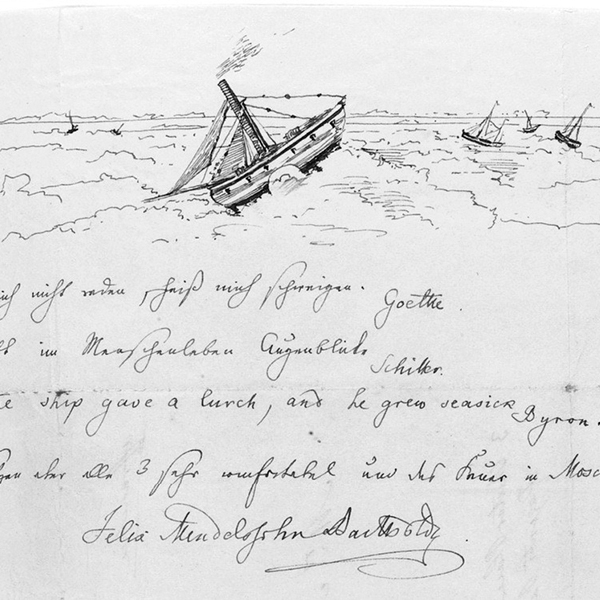 ich nicht reden, heiß mich schweigen. Goethe.
im Menschenleben Augenblicke Schiller.
ship gave a lurch, and he grew seasick Byron.
aber alle 3 sehr comfortabel und das Feuer in
Felix Mendelssohn Bartholdy.